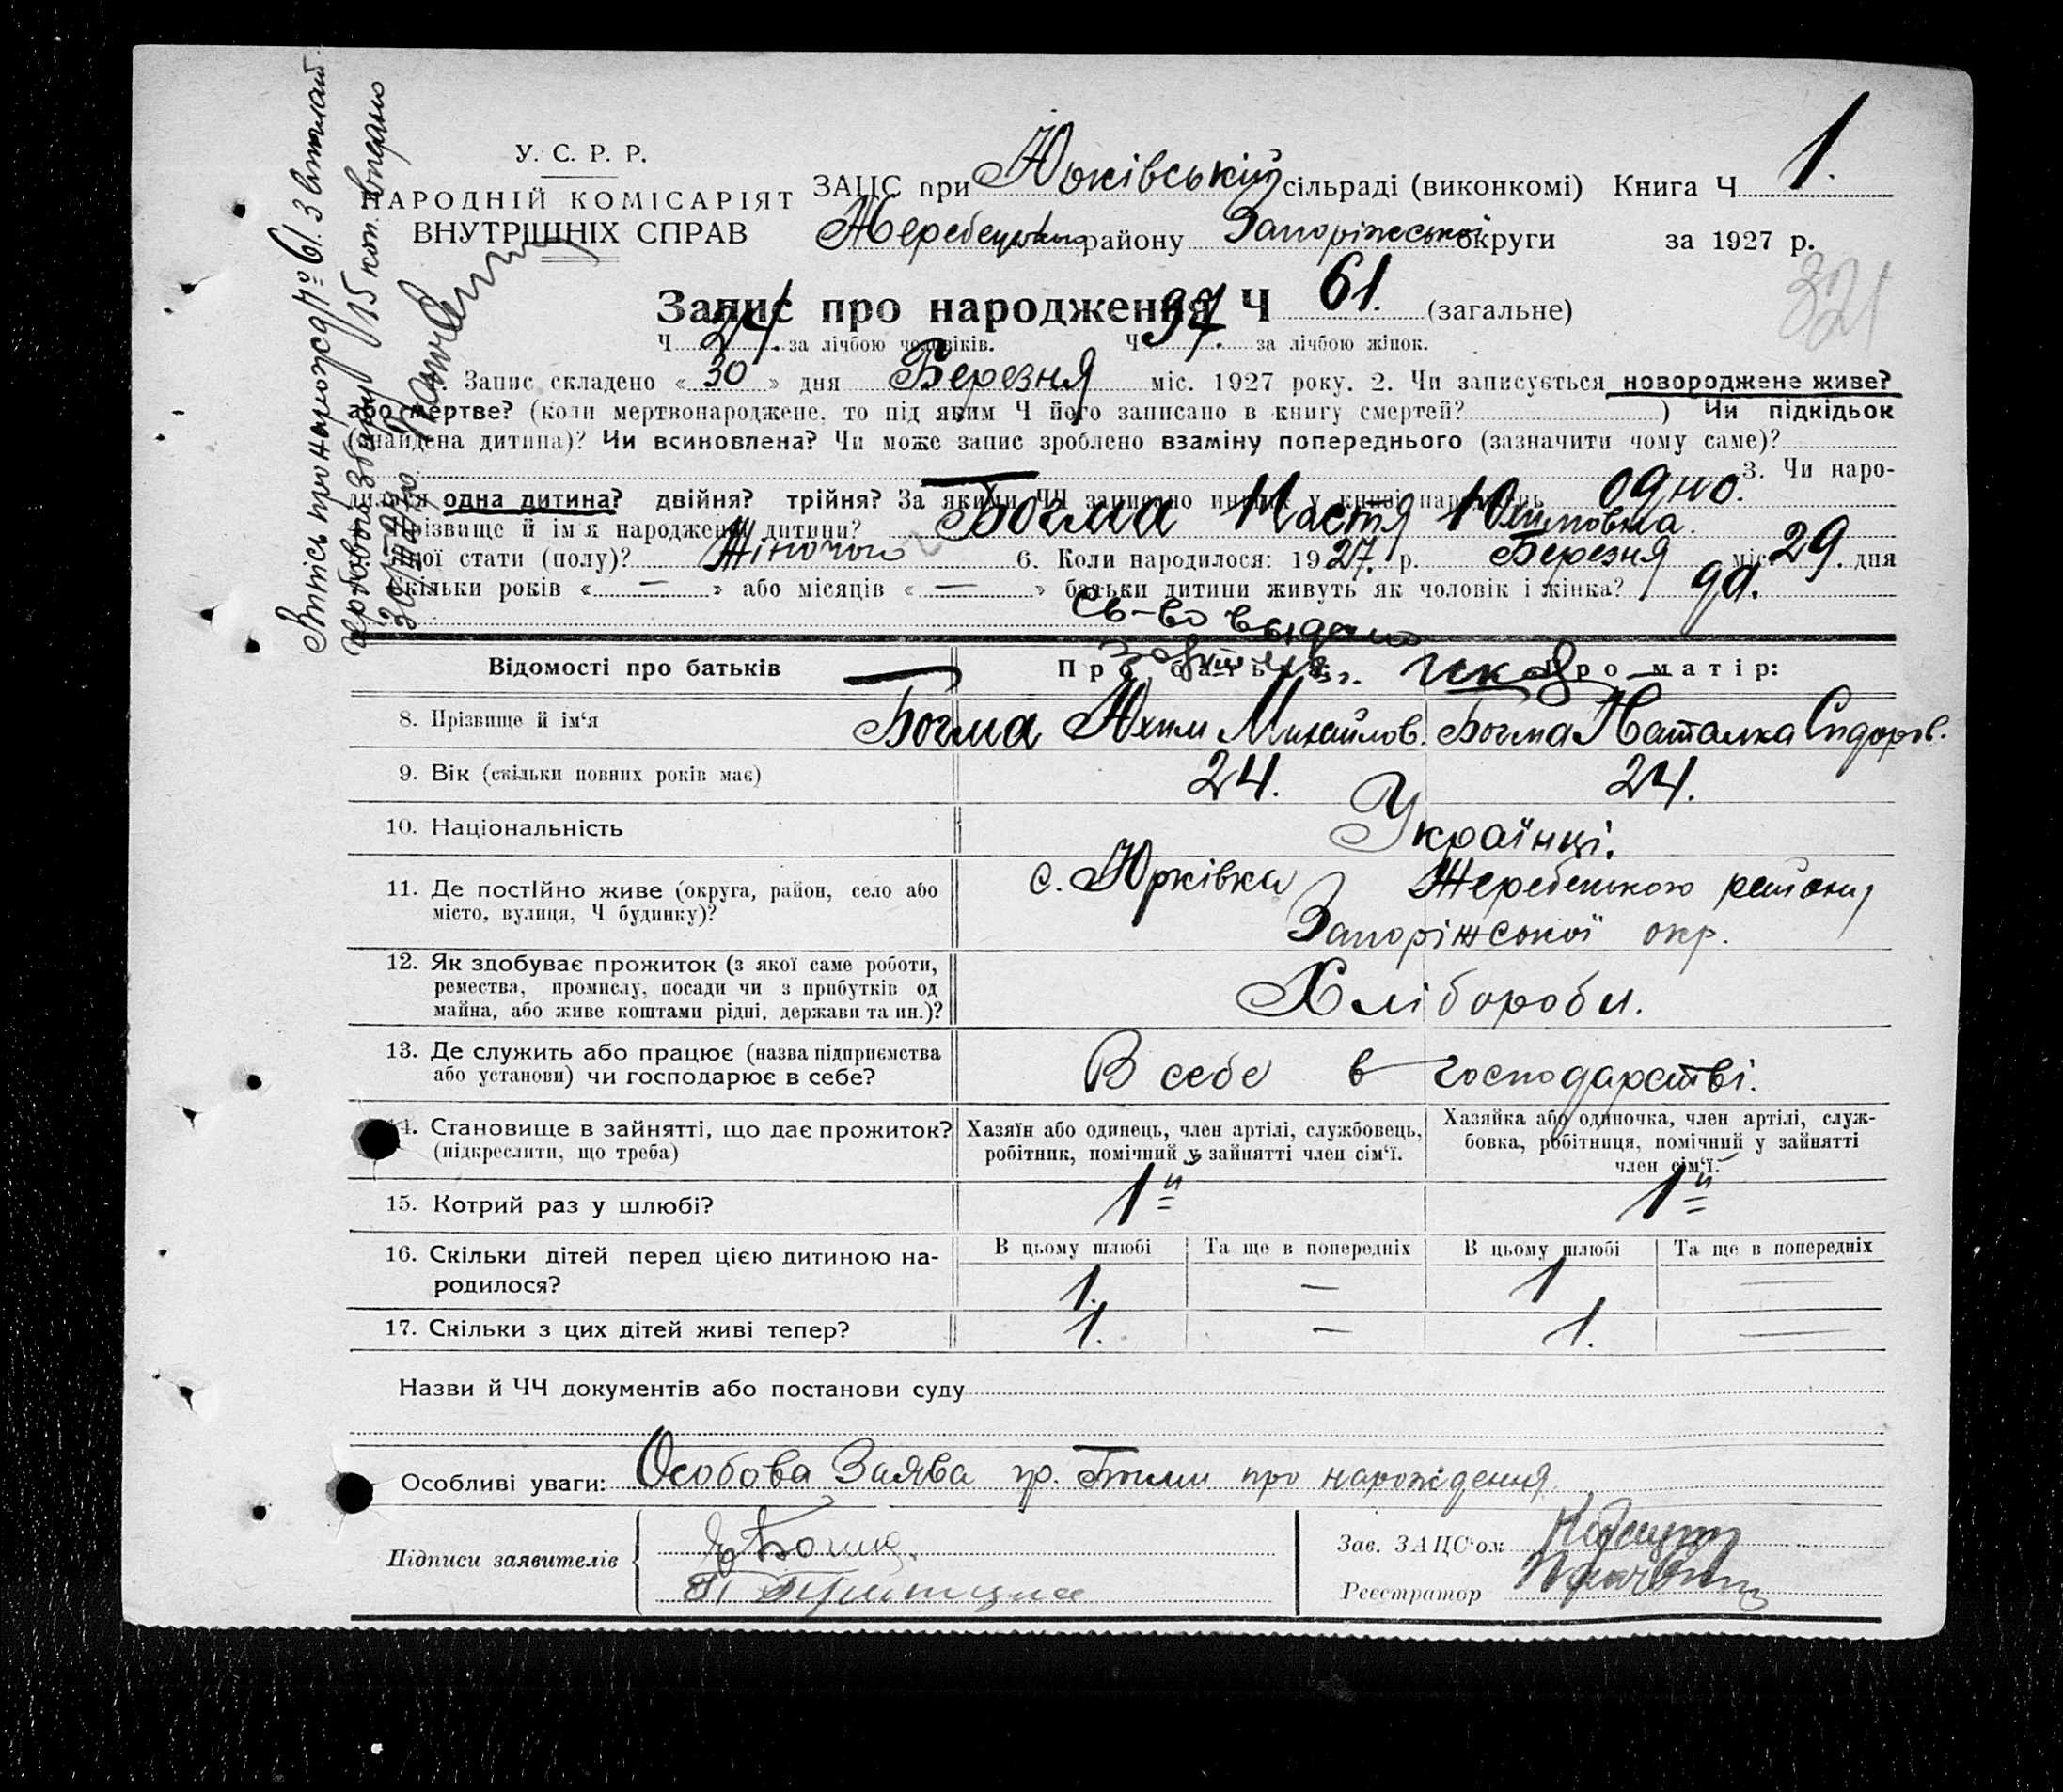 У. С. Р. Р.
НАРОДНІЙ КОМІСАРІЯТ
ВНУТРІШНІХ СПРАВ
ЗАЦС при Юрківській сільраді (виконкомі) Книга Ч 1.
Жеребецького району Запоріжської округи за 1927 р.
321
Запис про народження Ч 61. (загальне)
Ч 24. за лічбою чоловіків. Ч 37. за лічбою жінок.
Запис складено « 30 » дня Березня міс. 1927 року. 2. Чи записується новороджене живе?
або мертве? (коли мертвонароджене, то під яким Ч його записано в книгу смертей? ) Чи підкідьок
(знайдена дитина)? Чи всиновлена? Чи може запис зроблено взаміну попереднього (зазначити чому саме)?
3. Чи наро-
дилася одна дитина? двійня? трійня? За якими ЧЧ записано инших у книзі народжень одно.
прізвище й ім'я народженої дитини? Богма Настя Юхимовна.
якої стати (полу)? Жіночої 6. Коли народилося: 1927. р. Березня міс. 29. дня
Скільки років « — » або місяців « — » батьки дитини живуть як чоловік і жінка? да.
Св-во выдано
Відомості про батьків Про батька: Про матір:
8. Прізвище й ім'я Богма Юхим Михайлов. Богма Наталка Сидоров.
9. Вік (скільки повних років має) 24. 24.
10. Національність Українці.
11. Де постійно живе (округа, район, село або с. Юрківка Жеребецького району
місто, вулиця, Ч будинку)? Запоріжської окр.
12. Як здобуває прожиток (з якої саме роботи,
ремества, промислу, посади чи з прибутків од Хлібороби.
майна, або живе коштами рідні, держави та ин.)?
13. Де служить або працює (назва підприємства В себе в господарстві.
або установи) чи господарює в себе?
14. Становище в зайнятті, що дає прожиток? Хазяїн або одинець, член артілі, службовець, Хазяйка або одиночка, член артілі, служ-
(підкреслити, що треба) робітник, помічний у зайнятті член сім'ї. бовка, робітниця, помічний у зайнятті
член сім'ї.
15. Котрий раз у шлюбі? 1й 1й
16. Скільки дітей перед цією дитиною на- В цьому шлюбі Та ще в попередніх В цьому шлюбі Та ще в попередніх
родилося? 1. — 1 —
17. Скільки з цих дітей живі тепер? 1. — 1. —
Назви й ЧЧ документів або постанови суду
Особливі уваги: Особова Заява гр. Богми про народження.
Підписи заявителів Ю Богма.
Зав. ЗАЦС'ом
Реєстратор